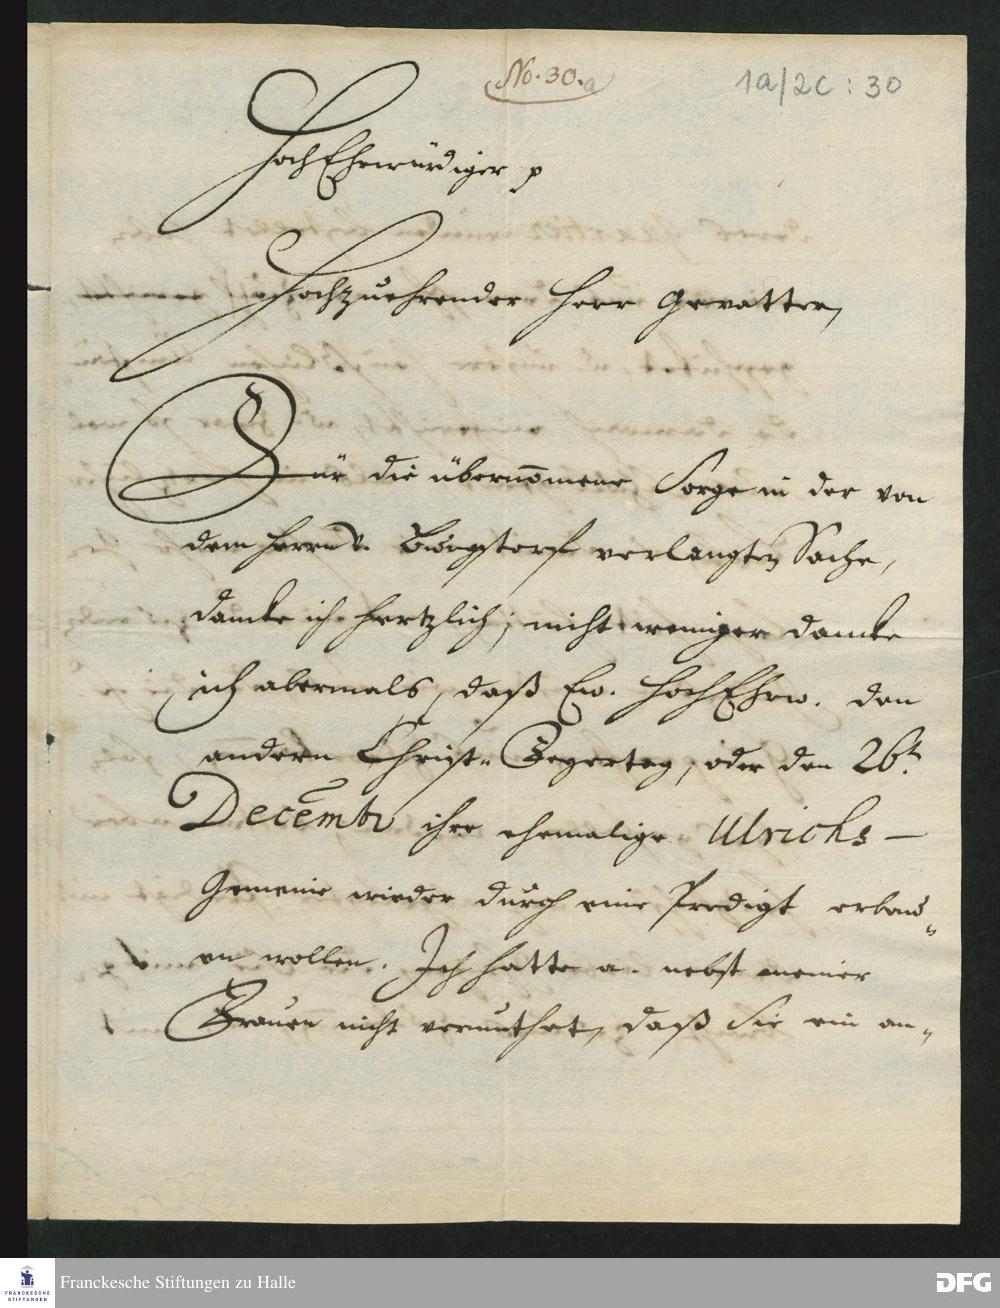 No. 30.a
1a/2c : 30
HochEhrwürdiger p
Hochzuehrender Herr Gevatter,
Für die übernom̄ene Sorge in der von
dem Herrn v. Burgstorf verlangten Sache,
dancke ich hertzlich; nicht weniger dancke
ich abermals, daß Ew. HochEhrw. den
andern Christ-Feyertag, oder den 26t.
Decembr ihre ehemalige Ulrichs-
Gemeine wieder durch eine Predigt erbau-
en wollen. Ich hatte a. nebst meiner
Frauen nicht vermuthet, daß Sie ein an-
FRANCKESCHE STIFTUNGEN
Franckesche Stiftungen zu Halle
DFG